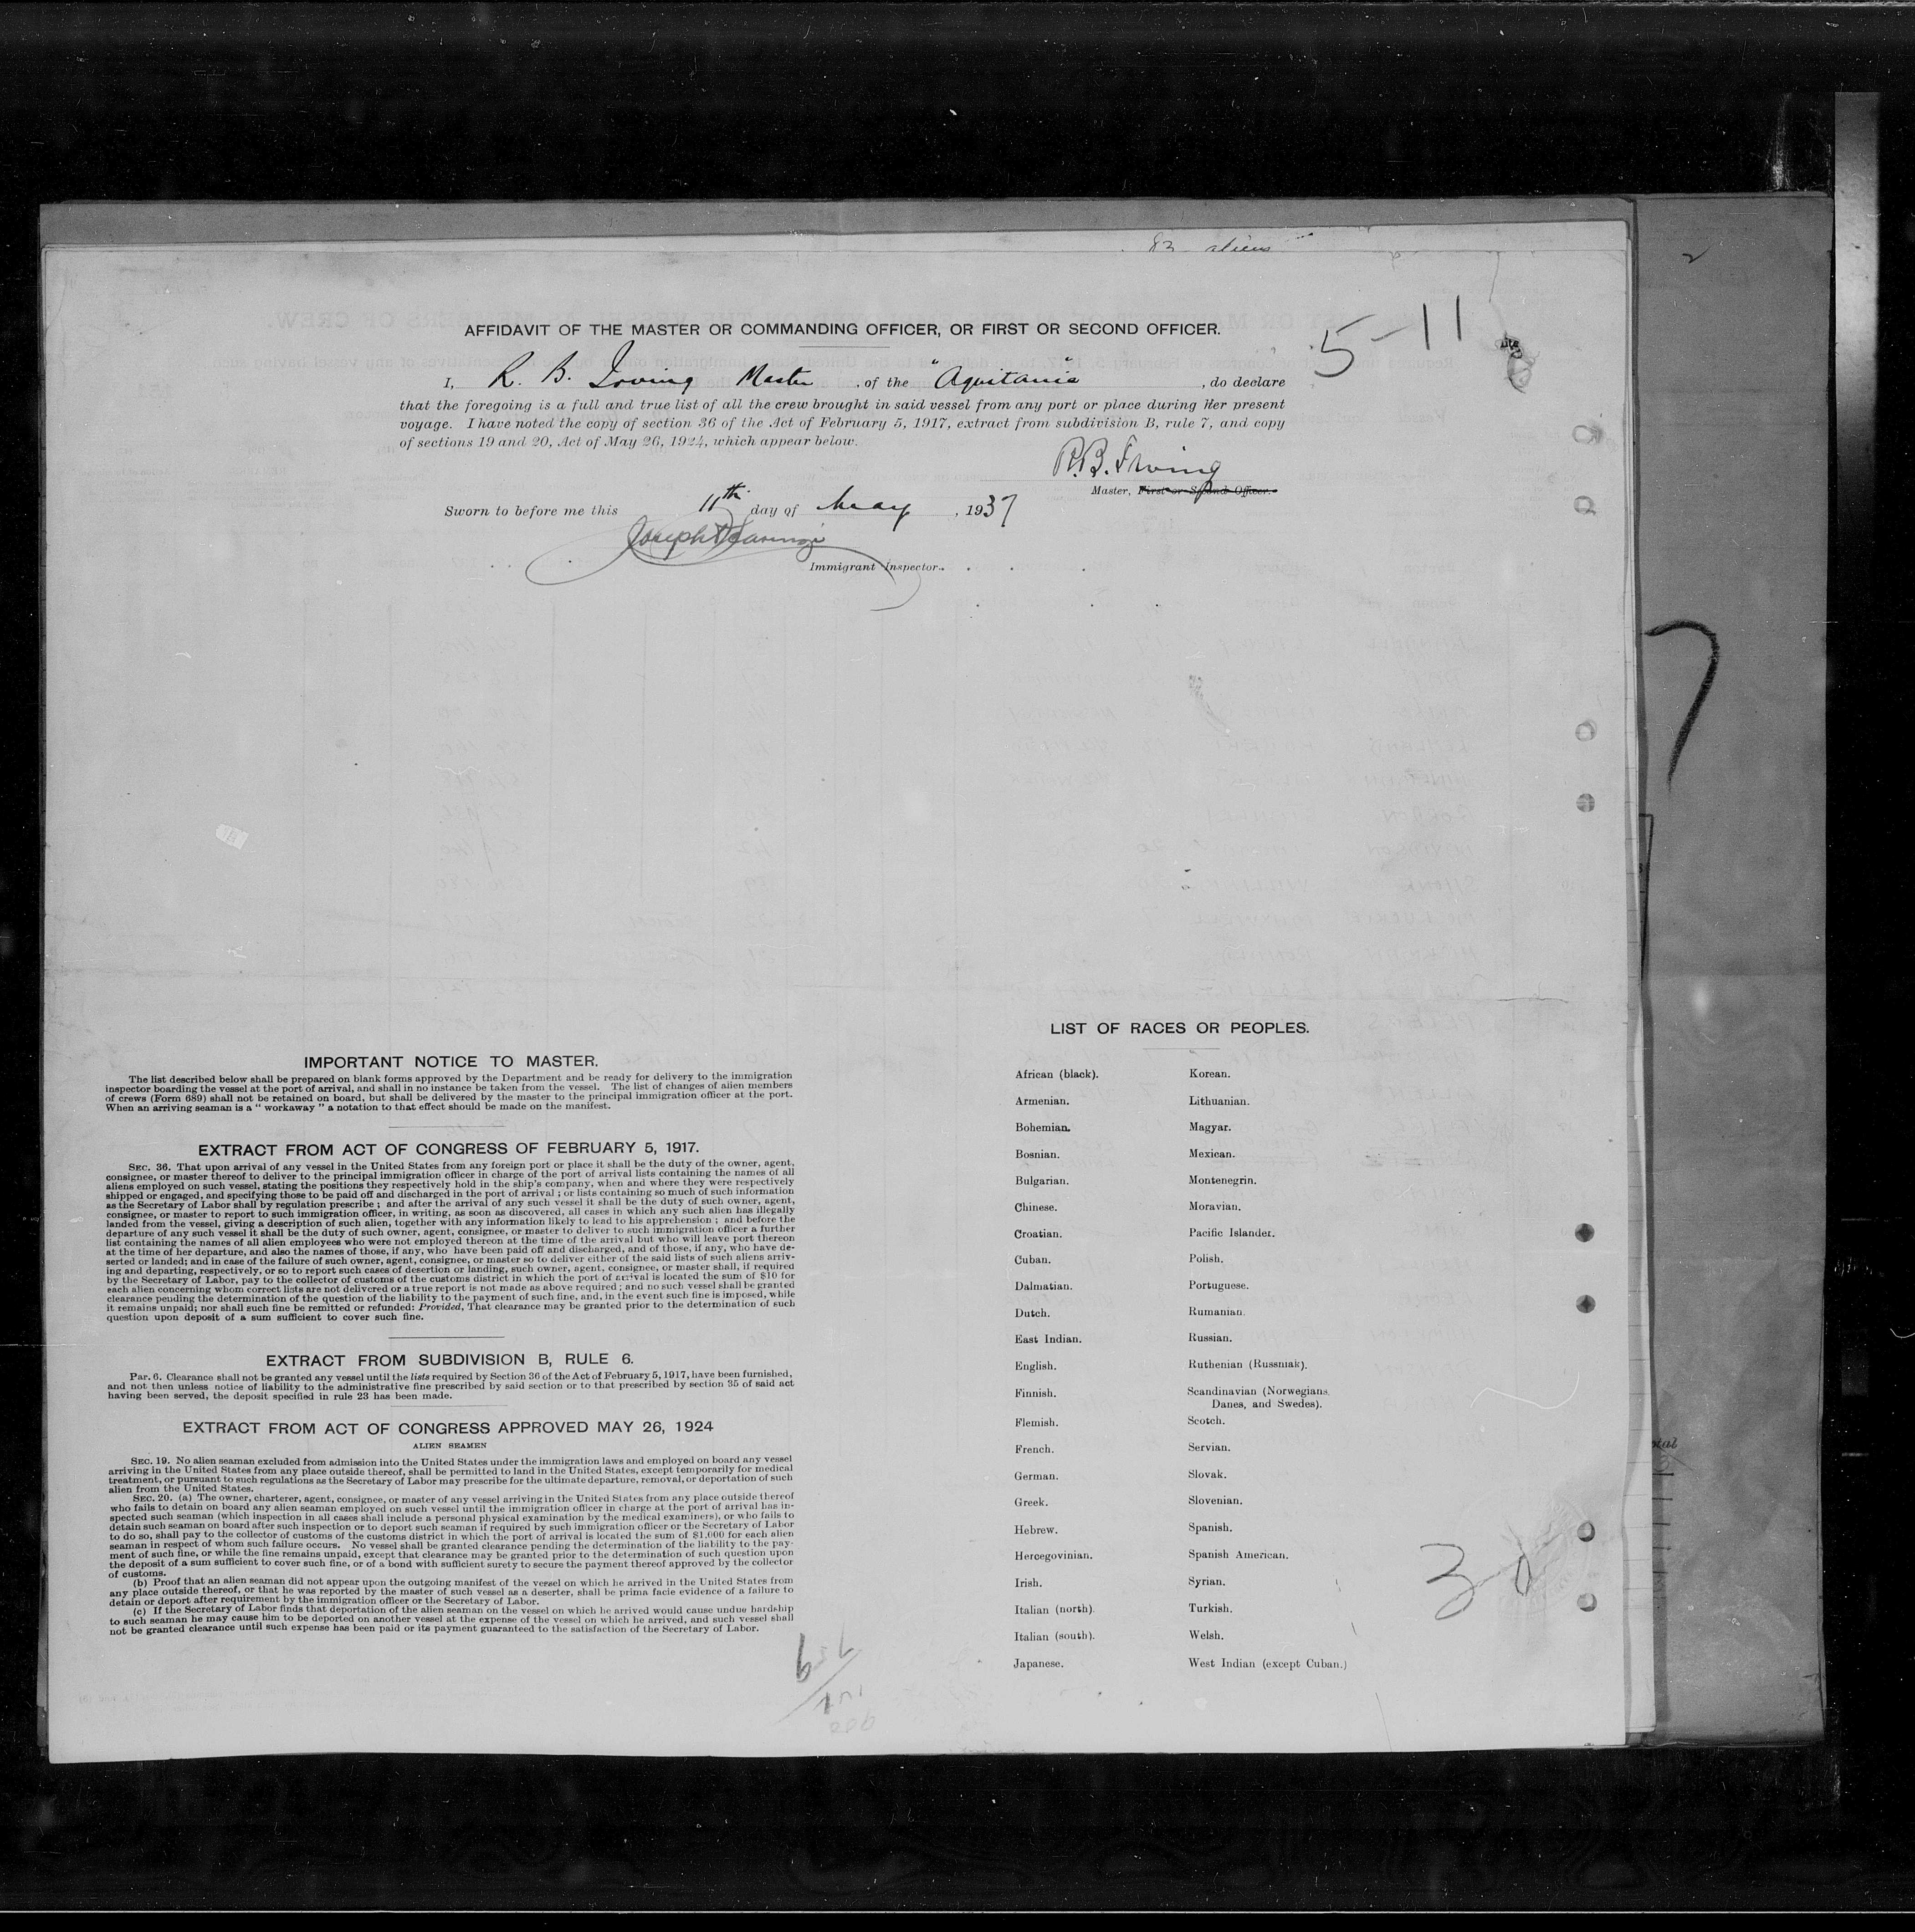 82 aliens
5-11
AFFIDAVIT OF THE MASTER OR COMMANDING OFFICER, OR FIRST OR SECOND OFFICER.
I, R. B. Irving Master , of the "Aquitania" , do declare
that the foregoing is a full and true list of all the crew brought in said vessel from any port or place during Her present
voyage. I have noted the copy of section 36 of the Act of February 5, 1917, extract from subdivision B, rule 7, and copy
of sections 19 and 20, Act of May 26, 1924, which appear below.
R.B. Irving
Master, First or Second Officer.
Sworn to before me this 11th day of May , 1937
Joseph
Immigrant Inspector.
7
IMPORTANT NOTICE TO MASTER.
The list described below shall be prepared on blank forms approved by the Department and be ready for delivery to the immigration
inspector boarding the vessel at the port of arrival, and shall in no instance be taken from the vessel. The list of changes of alien members
of crews (Form 689) shall not be retained on board, but shall be delivered by the master to the principal immigration officer at the port.
When an arriving seaman is a " workaway " a notation to that effect should be made on the manifest.
EXTRACT FROM ACT OF CONGRESS OF FEBRUARY 5, 1917.
SEC. 36. That upon arrival of any vessel in the United States from any foreign port or place it shall be the duty of the owner, agent,
consignee, or master thereof to deliver to the principal immigration officer in charge of the port of arrival lists containing the names of all
aliens employed on such vessel, stating the positions they respectively hold in the ship's company, when and where they were respectively
shipped or engaged, and specifying those to be paid off and discharged in the port of arrival ; or lists containing so much of such information
as the Secretary of Labor shall by regulation prescribe ; and after the arrival of any such vessel it shall be the duty of such owner, agent,
consignee, or master to report to such immigration officer, in writing, as soon as discovered, all cases in which any such alien has illegally
landed from the vessel, giving a description of such alien, together with any information likely to lead to his apprehension ; and before the
departure of any such vessel it shall be the duty of such owner, agent, consignee, or master to deliver to such immigration officer a further
list containing the names of all alien employees who were not employed thereon at the time of the arrival but who will leave port thereon
at the time of her departure, and also the names of those, if any, who have been paid off and discharged, and of those, if any, who have de-
serted or landed; and in case of the failure of such owner, agent, consignee, or master so to deliver either of the said lists of such aliens arriv-
ing and departing, respectively, or so to report such cases of desertion or landing, such owner, agent, consignee, or master shall, if required
by the Secretary of Labor, pay to the collector of customs of the customs district in which the port of arrival is located the sum of $10 for
each alien concerning whom correct lists are not delivered or a true report is not made as above required ; and no such vessel shall be granted
clearance pending the determination of the question of the liability to the payment of such fine, and, in the event such fine is imposed, while
it remains unpaid; nor shall such fine be remitted or refunded: Provided, That clearance may be granted prior to the determination of such
question upon deposit of a sum sufficient to cover such fine.
EXTRACT FROM SUBDIVISION B, RULE 6.
Par. 6. Clearance shall not be granted any vessel until the lists required by Section 36 of the Act of February 5, 1917, have been furnished,
and not then unless notice of liability to the administrative fine prescribed by said section or to that prescribed by section 35 of said act
having been served, the deposit specified in rule 23 has been made.
EXTRACT FROM ACT OF CONGRESS APPROVED MAY 26, 1924
ALIEN SEAMEN
SEC. 19. No alien seaman excluded from admission into the United States under the immigration laws and employed on board any vessel
arriving in the United States from any place outside thereof, shall be permitted to land in the United States, except temporarily for medical
treatment, or pursuant to such regulations as the Secretary of Labor may prescribe for the ultimate departure, removal, or deportation of such
alien from the United States.
SEC. 20. (a) The owner, charterer, agent, consignee, or master of any vessel arriving in the United States from any place outside thereof
who fails to detain on board any alien seaman employed on such vessel until the immigration officer in charge at the port of arrival has in-
spected such seaman (which inspection in all cases shall include a personal physical examination by the medical examiners), or who fails to
detain such seaman on board after such inspection or to deport such seaman if required by such immigration officer or the Secretary of Labor
to do so, shall pay to the collector of customs of the customs district in which the port of arrival is located the sum of $1,000 for each alien
seaman in respect of whom such failure occurs. No vessel shall be granted clearance pending the determination of the liability to the pay-
ment of such fine, or while the fine remains unpaid, except that clearance may be granted prior to the determination of such question upon
the deposit of a sum sufficient to cover such fine, or of a bond with sufficient surety to secure the payment thereof approved by the collector
of customs.
(b) Proof that an alien seaman did not appear upon the outgoing manifest of the vessel on which he arrived in the United States from
any place outside thereof, or that he was reported by the master of such vessel as a deserter, shall be prima facie evidence of a failure to
detain or deport after requirement by the immigration officer or the Secretary of Labor.
(c) If the Secretary of Labor finds that deportation of the alien seaman on the vessel on which he arrived would cause undue hardship
to such seaman he may cause him to be deported on another vessel at the expense of the vessel on which he arrived, and such vessel shall
not be granted clearance until such expense has been paid or its payment guaranteed to the satisfaction of the Secretary of Labor.
LIST OF RACES OR PEOPLES.
African (black).
Armenian.
Bohemian.
Bosnian.
Bulgarian.
Chinese.
Croatian.
Cuban.
Dalmatian.
Dutch.
East Indian.
English.
Finnish.
Flemish.
French.
German.
Greek.
Hebrew.
Hercegovinian.
Irish.
Italian (north).
Italian (south).
Japanese.
Korean.
Lithuanian.
Magyar.
Mexican.
Montenegrin.
Moravian.
Pacific Islander.
Polish.
Portuguese.
Rumanian.
Russian.
Ruthenian (Russniak).
Scandinavian (Norwegians,
Danes, and Swedes).
Scotch.
Servian.
Slovak.
Slovenian.
Spanish.
Spanish American.
Syrian.
Turkish.
Welsh.
West Indian (except Cuban.)
30